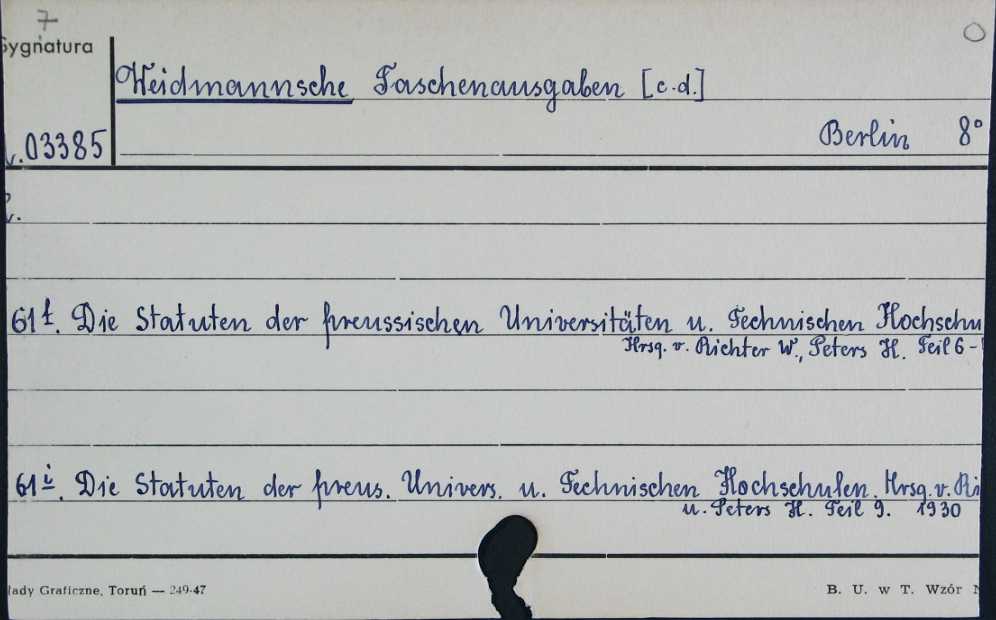 7
Sygnatura
Weidmannsche Taschenausgaben [c.d.]
Berlin 8°
v.03385
61f. Die Statuten der preussischen Universitäten u. Technischen Hochschu
Hrsg. v. Richter W., Peters H. Teil 6-
61i. Die Statuten der preus. Univers. u. Technischen Hochschulen. Hrsg. v. Ri
u. Peters H. Teil 9. 1930
łady Graficzne, Toruń — 249-47
B. U. w T. Wzór N